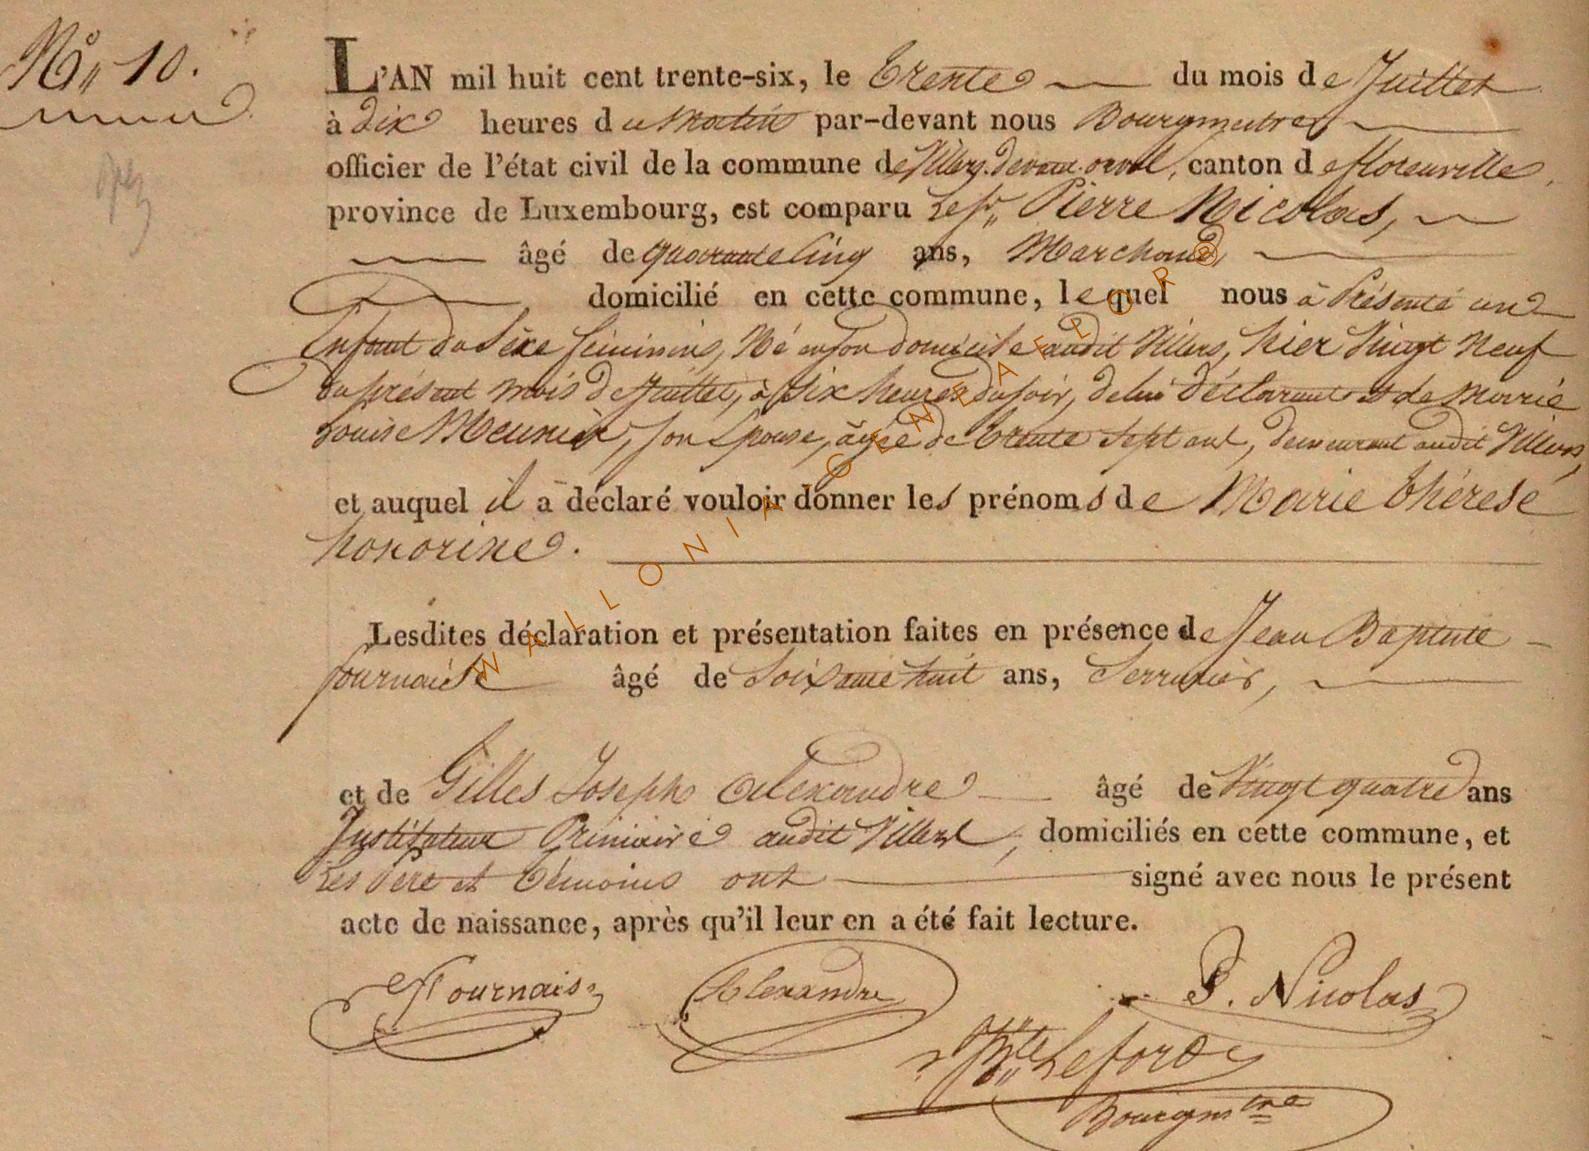 N° 10.
L'AN mil huit cent trente-six, le Trente du mois de Juillet
à dix heures du Matin par-devant nous Bourgmestre
officier de l'état civil de la commune de Villers-devant-orval, canton de florenville,
province de Luxembourg, est comparu Le Sr. Pierre Nicolas,
âgé de quarante Cinq ans, Marchand,
domicilié en cette commune, lequel nous à Présenté un
Enfant du Sèxe féminins, Né en son domicile audit Villers, hier Vingt Neuf
du présent mois de Juillet, à Six heures du soir, de lui Déclarant et de Marie
Louise Meunier, son Epouse, âgée de Trente Sept ans, demeurant audit Villers,
et auquel il a déclaré vouloir donner les prénoms de Marie thérese
honorine.
Lesdites déclaration et présentation faites en présence de Jean Baptiste
fournaise âgé de Soixante huit ans, Serrurier,
et de Gilles Joseph Alexandre âgé de Vingt quatre ans
Instituteur Primaire audit Villers, domiciliés en cette commune, et
Les Père et Témoins ont signé avec nous le présent
acte de naissance, après qu'il leur en a été fait lecture.
Alexandre P. Nicolas
Bte Lefort
Bourgmtre
WALLONIA GENEALOR